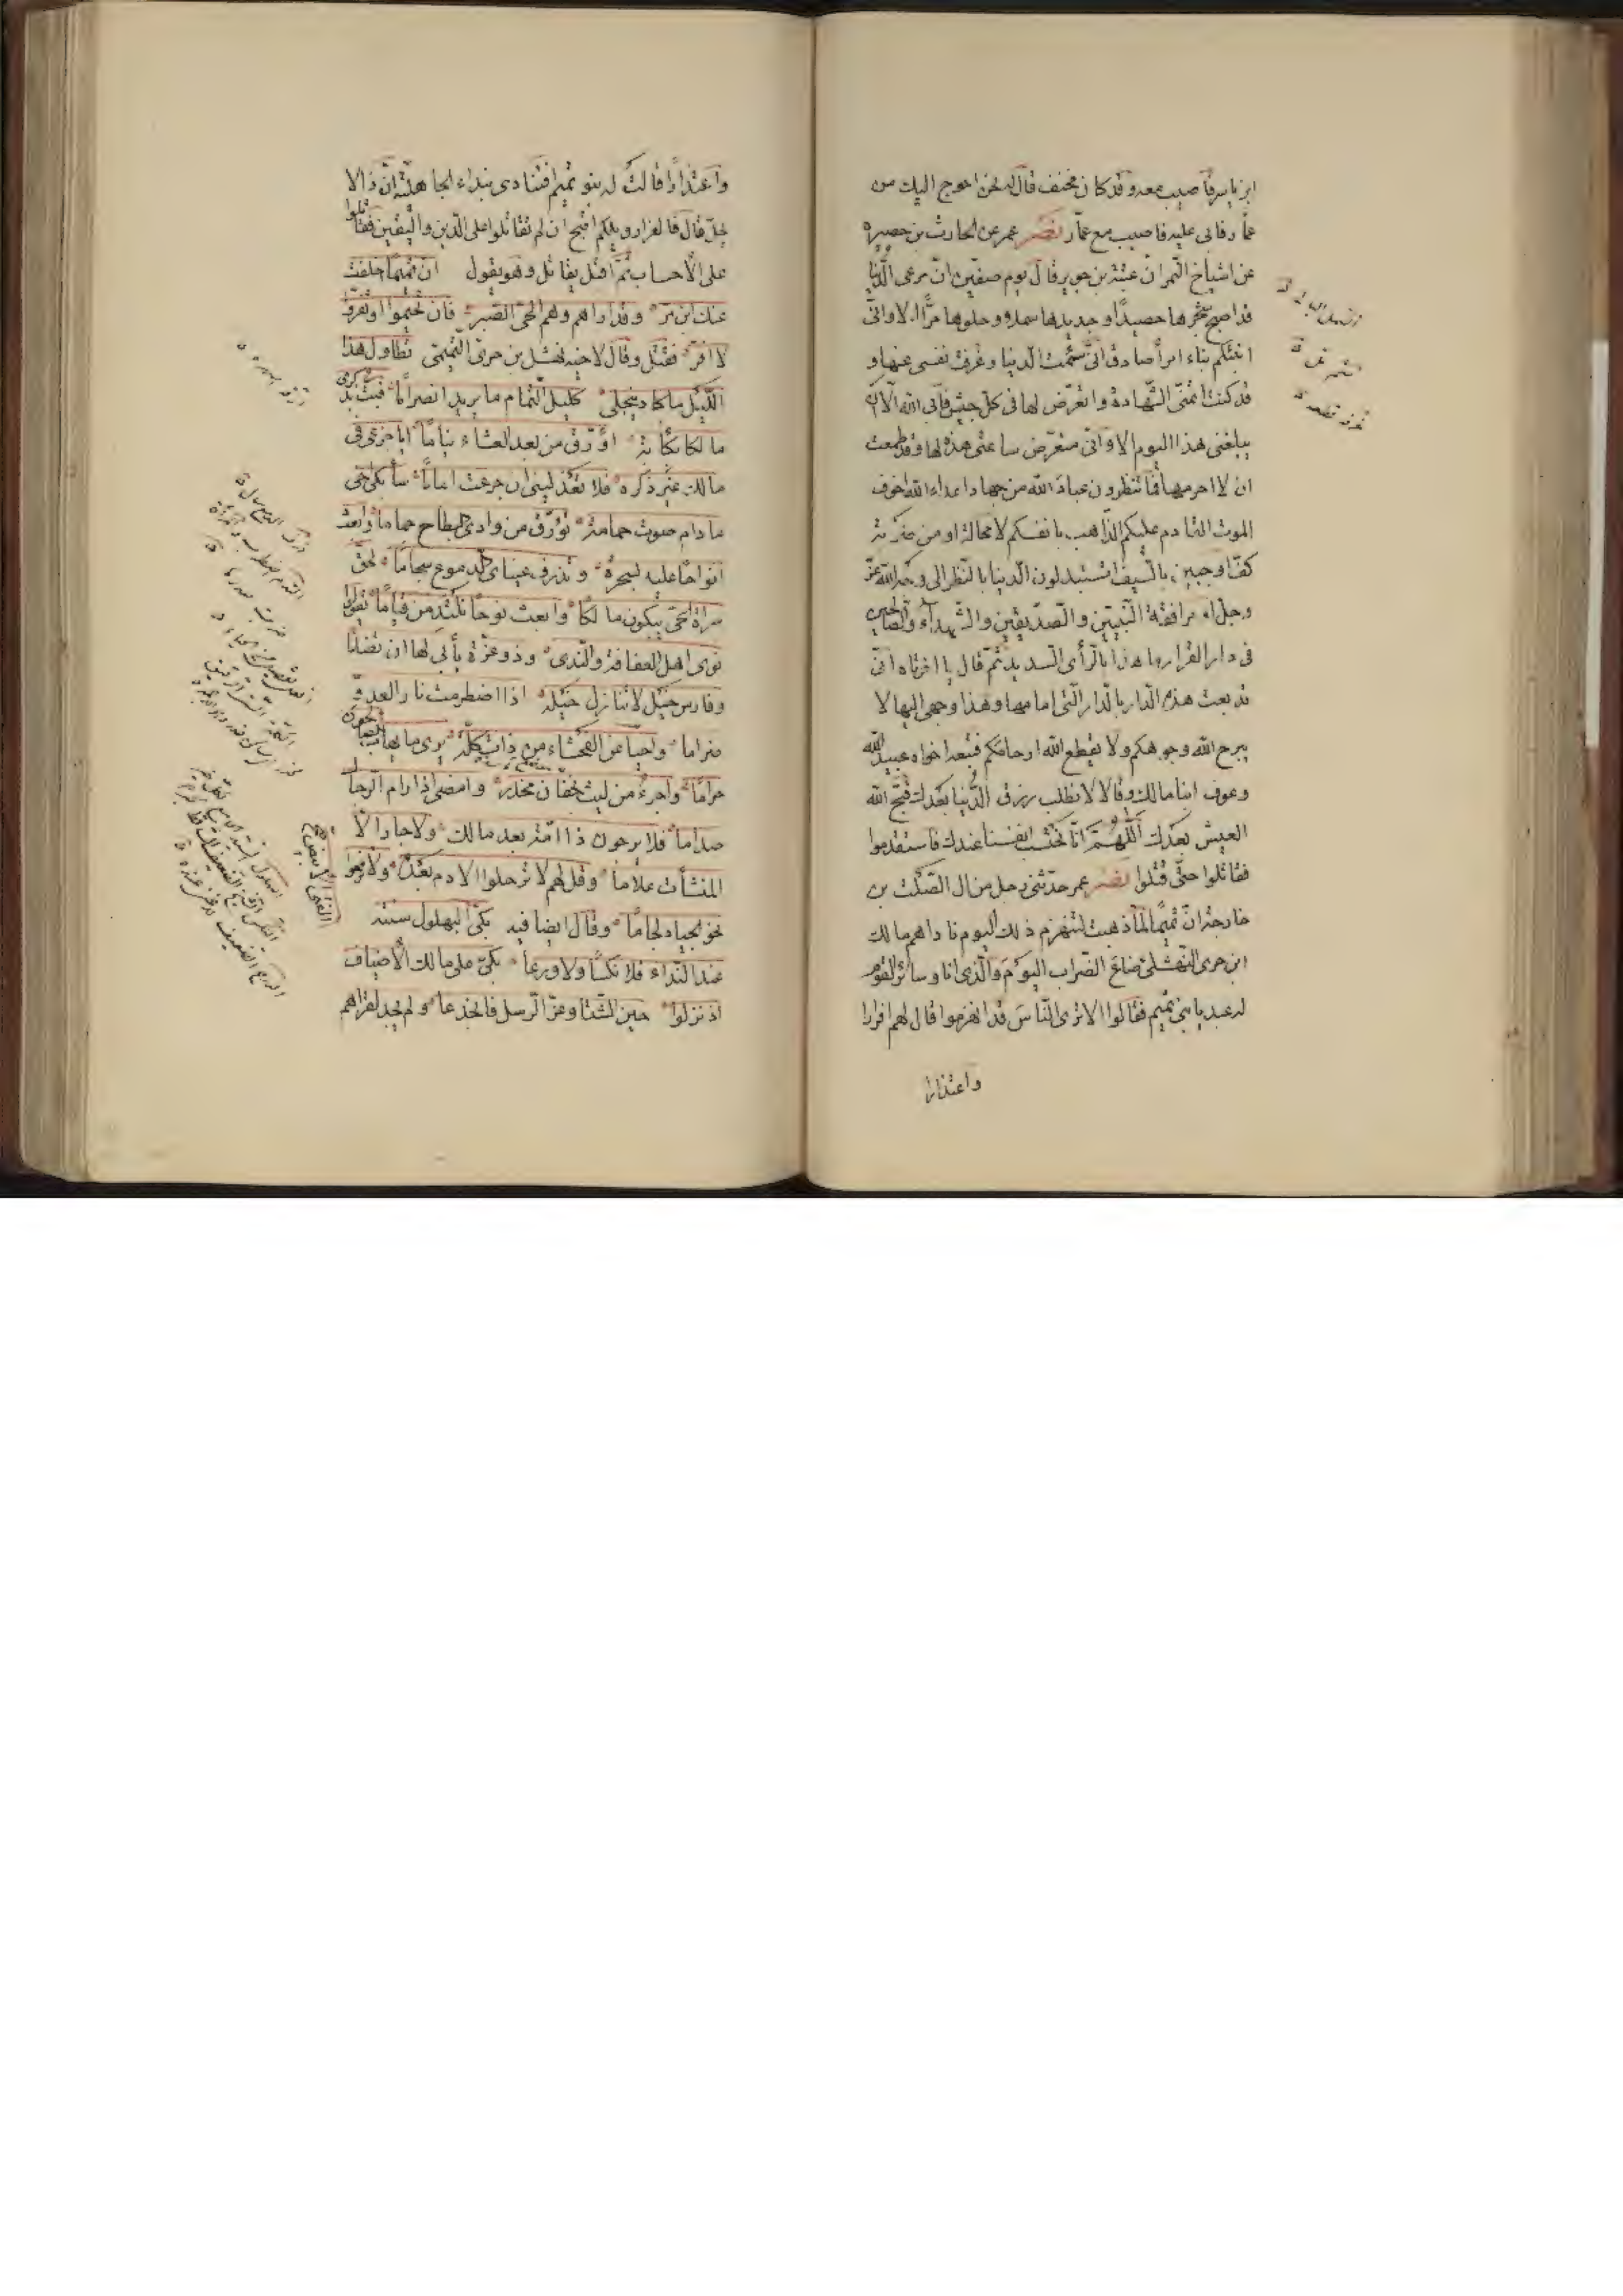 ابن ياسر فاصيب معه وقد كان مخنف قال له نحن احوج اليك من
عمار فابى عليه فاصيب مع عمار نصر عمر عن الحارث بن حصيره
عن اشياخ النمر ان عتبة بن جويرة قال يوم صفين ان مرعى الدنيا
قد اصبح شجرها حصيدا وجديدها سملا وحلوها مرا الا وانى
انبئكم نباء امرأ صادق انى سئمت الدنيا وعزفت نفسى عنها و
قد كنت اتمنى الشهادة واتعرض لها فى كل جيش فابى الله الا ان
يبلغنى هذا اليوم الا وانى متعرض ساعتى هذه لها وقد طمعت
ان لا احرمها فما تنظرون عباد الله من جهاد اعداء الله اخوف
الموت القادم عليكم الذاهب بانفسكم لا محالة او من ضربة
كف او جبين بالسيف اتستبدلون الدنيا بالنظر الى وجه الله عز
وجل او مرافقة النبيين والصديقين والشهداء والصالحين
فى دار القرار ما هذا بالرأى السديد ثم قال يا اخوتاه انى
قد بعت هذه الدار بالدار التى امامها وهذا وجهى اليها لا
يبرح الله وجوهكم ولا يقطع الله ارحامكم فتبعه اخواه عبيد الله
وعوف ابنا مالك وقالا لا نطلب رزق الدنيا بعدك قبح الله
العيش بعدك اللهم انا نحتسب انفسنا عندك فاستقدموا
فقاتلوا حتى قتلوا نصر عمر حدثنى رجل من ال الصلت بن
خارجة ان تميما لما ذهبت لتنهزم ذلك اليوم ناداهم مالك
ابن حرى النهشلى ضاع الضراب اليوم والذى انا وسائر القوم
له عبد يا بنى تميم فقالوا الا ترى الناس قد انهزموا قال لهم افرارا
واعتذارا
واعتذارا قالت له بنو تميم افتنادى بنداء الجاهلية ان ذا لا
يحل قال فالفرار ويلكم اقبح ان لم تقاتلوا على الدين واليقين فقاتلوا
على الاحساب ثم اقبل يقاتل وهو يقول ان تميما اخلفت
عنك ابن مر وقد اراهم وهم الحى الصبر فان تخيموا او تفروا
لا افر فقتل وقال لاخيه نهشل بن حرى التميمى تطاول هذا
الليل ما كاد ينجلى كليل التمام ما يريد انصراما فبت بذكرى
مالكا بكآبة اورق من بعد العشاء نياما ابا جزعى فى
مالك غير ذكره فلا تعذلينى ان جزعت اماما سابكى اخى
ما دام صوت حمامة تؤرق من وادى البطاح حماما وابعث
انواحا عليه بسحرة وتذرف عيناى الدموع سجاما لحق
سراة الحى يبكون مالكا وابعث نوحا يلتدمن قياما يقولون
ثوى اهل العفافة والندى وذو عزة يأبى لها ان تضاما
وفارس خيل لا تنازل خيله اذا اضطرمت نار العدو
ضراما واحيا عن الفحشاء من ذات كلة يرى ما يهاب الصالحون
حراما واجرء من ليث بخفان مخدر وامضى اذا رام الرجال
صداما فلا يرجون ذا امة بعد مالك ولا جازرا لا
المنشأت غلاما وقل لهم لا ترحلوا الادم بعده ولا ترفعوا
نحو الجياد لجاما وقال ايضا فيه بكى البهلول سنته
عند النداء فلا نكسا ولا ورعا بكى على مالك الاضياف
اذ نزلوا حين الشتا وعز الرسل فانجذعا ولم يجد لقراهم